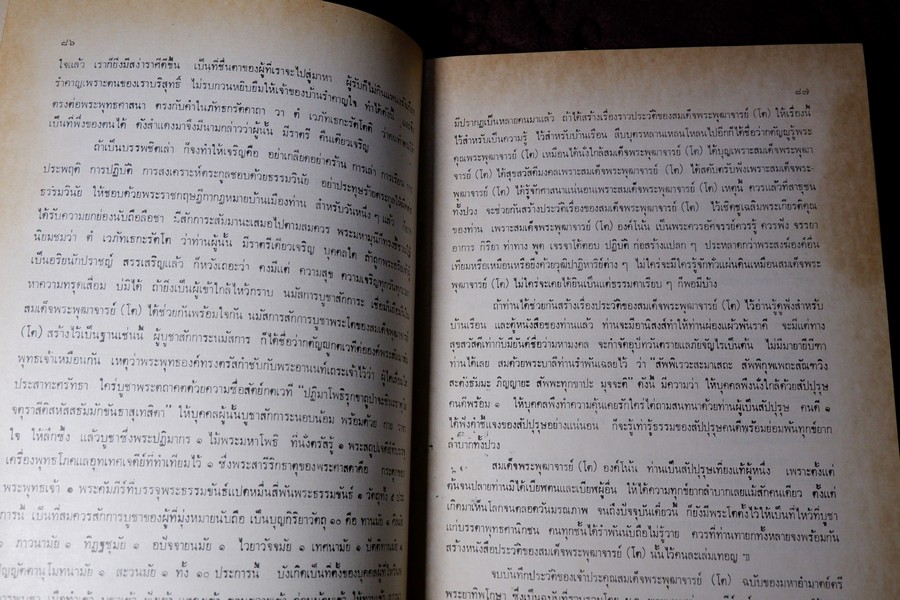 ๘๖
ใจแล้ว เราก็ยิ่งมีสง่าราศีดีขึ้น เป็นที่ชื่นตาของผู้ที่เราจะไปสู่มาหา ผู้รับก็ไม่กินแหนง
รำคาญเพราะตนของเราบริสุทธิ์ ไม่รบกวนหยิบยืมให้เจ้าของบ้านรำคาญใจ ทำได้ดังนี้
ตรงต่อพระพุทธศาสนา ตรงกับคำในภัทธกรัตคาถา วา ตํ เวภัทเธกะรัตโตติ
เป็นที่พึ่งของตนได้ ดังสำแดงมาจึงมีนามกล่าวว่าผู้นั้น มีราตรี คืนเดียวเจริญ
ถ้าเป็นบรรพชิตเล่า ก็จงทำให้เจริญคือ อย่าเกลียดอย่าคร้าน การเล่า การเรียน การ
ประพฤติ การปฏิบัติ การสงเคราะห์ตระกูลชอบด้วยธรรมวินัย อย่าประทุษร้ายตระกูล
ธรรมวินัย ให้ชอบด้วยพระราชกฤษฎีกากฎหมายบ้านเมืองท่าน สำหรับวันหนึ่ง ๆ แล้ว
ได้รับความยกย่องนับถือลือชา มีสักการะสัมมานะเสมอไปตามสมควร พระมหามุนีก็ทรงสรร
นิยมชมว่า ตํ เวภัทเธกะรัตโต ว่าท่านผู้นั้น มีราตรีเดียวเจริญ บุคคลใด ถ้าถูกพระอริย
เป็นอริยนักปราชญ์ สรรเสริญแล้ว ก็หวังเถอะว่า คงมีแต่ ความสุข ความเจริญทุกวันทุกเวลา
หาความทรุดเสื่อม บ่มิได้ ถ้ายิ่งเป็นผู้เข้าใกล้ไหว้กราบ นมัสการบูชาสักการะ
สมเด็จพระพุฒาจารย์ (โต) ได้ช่วยกันพร้อมใจกัน นมัสการสักการบูชาพระโตของสมเด็จพระพุฒาจารย์
(โต) สร้างไว้เป็นฐานเช่นนี้ ผู้บูชาสักการะนมัสการ ก็ได้ชื่อว่ากตัญญูกตเวทีต่อองค์พระสัมมาสัม
พุทธเจ้าเหมือนกัน เหตุว่าพระพุทธองค์ทรงตรัสกำชับกับพระอานนท์เถระเจ้าไว้ว่า ผู้ใด
ประสาทะศรัทธา ใคร่บูชาพระตถาคตด้วยความซื่อสัตย์กตเวที
จตุราสีติสหัสสธมมักขันธาสุเทสิตา" ให้บุคคลผู้นั้นบูชาสักการะนอบน้อม พร้อมด้วย กาย วาจา
ใจ ให้ลึกซึ้ง แล้วบูชาซึ่งพระปฏิมากร ๑ ไม้พระมหาโพธิ ที่นั่งตรัสรู้ ๑ พระสถูปเจดีย์ที่บรรจุ
เครื่องพุทธโภคแลอุทเทศเจดีย์ที่ทำเทียมไว้ ๑ ซึ่งพระสารีริกธาตุของพระศาสดาคือ กระดูกของ
พระพุทธเจ้า ๑ พระคัมภีร์ที่บรรจุพระธรรมขันธ์แปดหมื่นสี่พันพระธรรมขันธ์ ๑ วัตถุทั้ง ๕
การนี้ เป็นที่สมควรสักการบูชาของผู้ที่มุ่งหมายนับถือ เป็นบุญกิริยาวัตถุ ๑๐ คือ ทานมัย ๑
๑ ภาวนามัย ๑ ทิฏฐชุมัย ๑ อปัจจายนมัย ๑ ไวยาวัจจมัย ๑ เทศนามัย ๑ ปัตติทานมัย ๑
ปัญญัตตานุโมทนามัย ๑ สะวนมัย ๑ ทั้ง ๑๐ ประการนี้ บังเกิดเป็นที่ตั้งของบุคคลผู้ที่
๘๗
มีปรากฏเป็นหลายคนมาแล้ว ถ้าได้สร้างเรื่องราวประวัติของสมเด็จพระพุฒาจารย์ (โต) ให้เรื่องนี้
ไว้สำหรับเป็นความรู้ ไว้สำหรับบ้านเรือน สืบบุตรหลานเหลนโหลนไปอีกก็ได้ชื่อว่ากตัญญูรู้พระ
คุณพระพุฒาจารย์ (โต) เหมือนได้นั่งใกล้สมเด็จพระพุฒาจารย์ (โต) ได้บุญเพราะสมเด็จพระพุฒา
จารย์ (โต) ได้สุขสวัสดิมงคลเพราะสมเด็จพระพุฒาจารย์ (โต) ได้สดับตรับฟังเพราะสมเด็จพระ
พุฒาจารย์ (โต) ได้รู้จักศาสนาแน่นอนเพราะสมเด็จพระพุฒาจารย์ (โต) เหตุนี้ ควรแล้วที่สาธุชน
ทั้งปวง จะช่วยกันสร้างประวัติเรื่องของสมเด็จพระพุฒาจารย์ (โต) ไว้เชิดชูเฉลิมพระเกียรติคุณ
ของท่าน เพราะสมเด็จพระพุฒาจารย์ (โต) องค์โน้น เป็นพระควรอัศจรรย์ควรรู้ ควรฟัง จรรยา
อาการ กิริยา ท่าทาง พูด เจรจาโต้ตอบ ปฏิบัติ ก่อสร้างแปลก ๆ ประหลาดกว่าพระสงฆ์องค์อื่น
เทียมหรือเหมือนหรือยิ่งด้วยวุฒิปาฏิหาริย์ต่าง ๆ ไม่ใคร่จะมีใครรู้จักทั่วแผ่นดินเหมือนสมเด็จพระ
พุฒาจารย์ (โต) ไม่ใคร่จะเคยได้ยินเป็นแต่ธรรมดาเรียบ ๆ ก็พอมีบ้าง
ถ้าท่านได้ช่วยกันสร้างเรื่องประวัติของสมเด็จพระพุฒาจารย์ (โต) ไว้อ่านรู้ดูฟังสำหรับ
บ้านเรือน และตู้หนังสือของท่านแล้ว ท่านจะมีอานิสงส์ทำให้ท่านผ่องแผ้วพ้นราคี จะมีแต่ทาง
สุขสวัสดิ์เท่ากับมียันต์ชื่อว่ามหามงคล จะกำจัดอุปัทวันตรายแลภัยจัญไรเป็นต้น ไม่มีมายายีบีฑา
ท่านได้เลย สมด้วยพระบาลีที่ท่านรำพันเฉลยไว้ ว่า "สัพพีเวระสะมาสถะ สัพพิกุพเพถะสัณฐวัง
สะตังธัมมะ ภิญญายะ สัพพะทุกขาปะ มุจจะติ" ดังนี้ มีความว่า ให้บุคคลพึงนั่งใกล้ด้วยสัปปุรุษ
คนดีพร้อม ๑ ให้บุคคลพึงทำความคุ้นเคยรักใคร่ไต่ถามสนทนาด้วยท่านผู้เป็นสัปปุรุษ คนดี ๑
ได้ฟังคำชี้แจงของสัปปุรุษอย่างแน่นอน ก็จะรู้เท่ารู้ธรรมของสัปปุรุษคนดีพร้อมย่อมพ้นทุกข์ยาก
ลำบากทั้งปวง
สมเด็จพระพุฒาจารย์ (โต) องค์โน้น ท่านเป็นสัปปุรุษเที่ยงแท้ผู้หนึ่ง เพราะตั้งแต่
ต้นจนปลายท่านมิได้เบียฬตนและเบียฬผู้อื่น ให้ได้ความทุกข์ยากลำบากเลยแม้สักคนเดียว ตั้งแต่
เกิดมาเห็นโลกจนตลอดวันมรณภาพ จนถึงปัจจุบันเดี๋ยวนี้ ก็ยังมีพระโตตั้งไว้ให้เป็นที่ไหว้ที่บูชา
แก่บรรดาพุทธศาสนิกชน คนทุกชั้นได้รำพันนับถือไม่รู้วาย ควรที่ท่านทายกทั้งหลายจงพร้อมกัน
สร้างหนังสือประวัติของสมเด็จพระพุฒาจารย์ (โต) นั้นไว้คนละเล่มเทอญ ฯ
จบบันทึกประวัติของเจ้าประคุณสมเด็จพระพุฒาจารย์ (โต) ฉบับของมหาอำมาตย์ตรี
พระยาทิพโกษา ซึ่งเป็นฉบับที่รวบรวมโดย